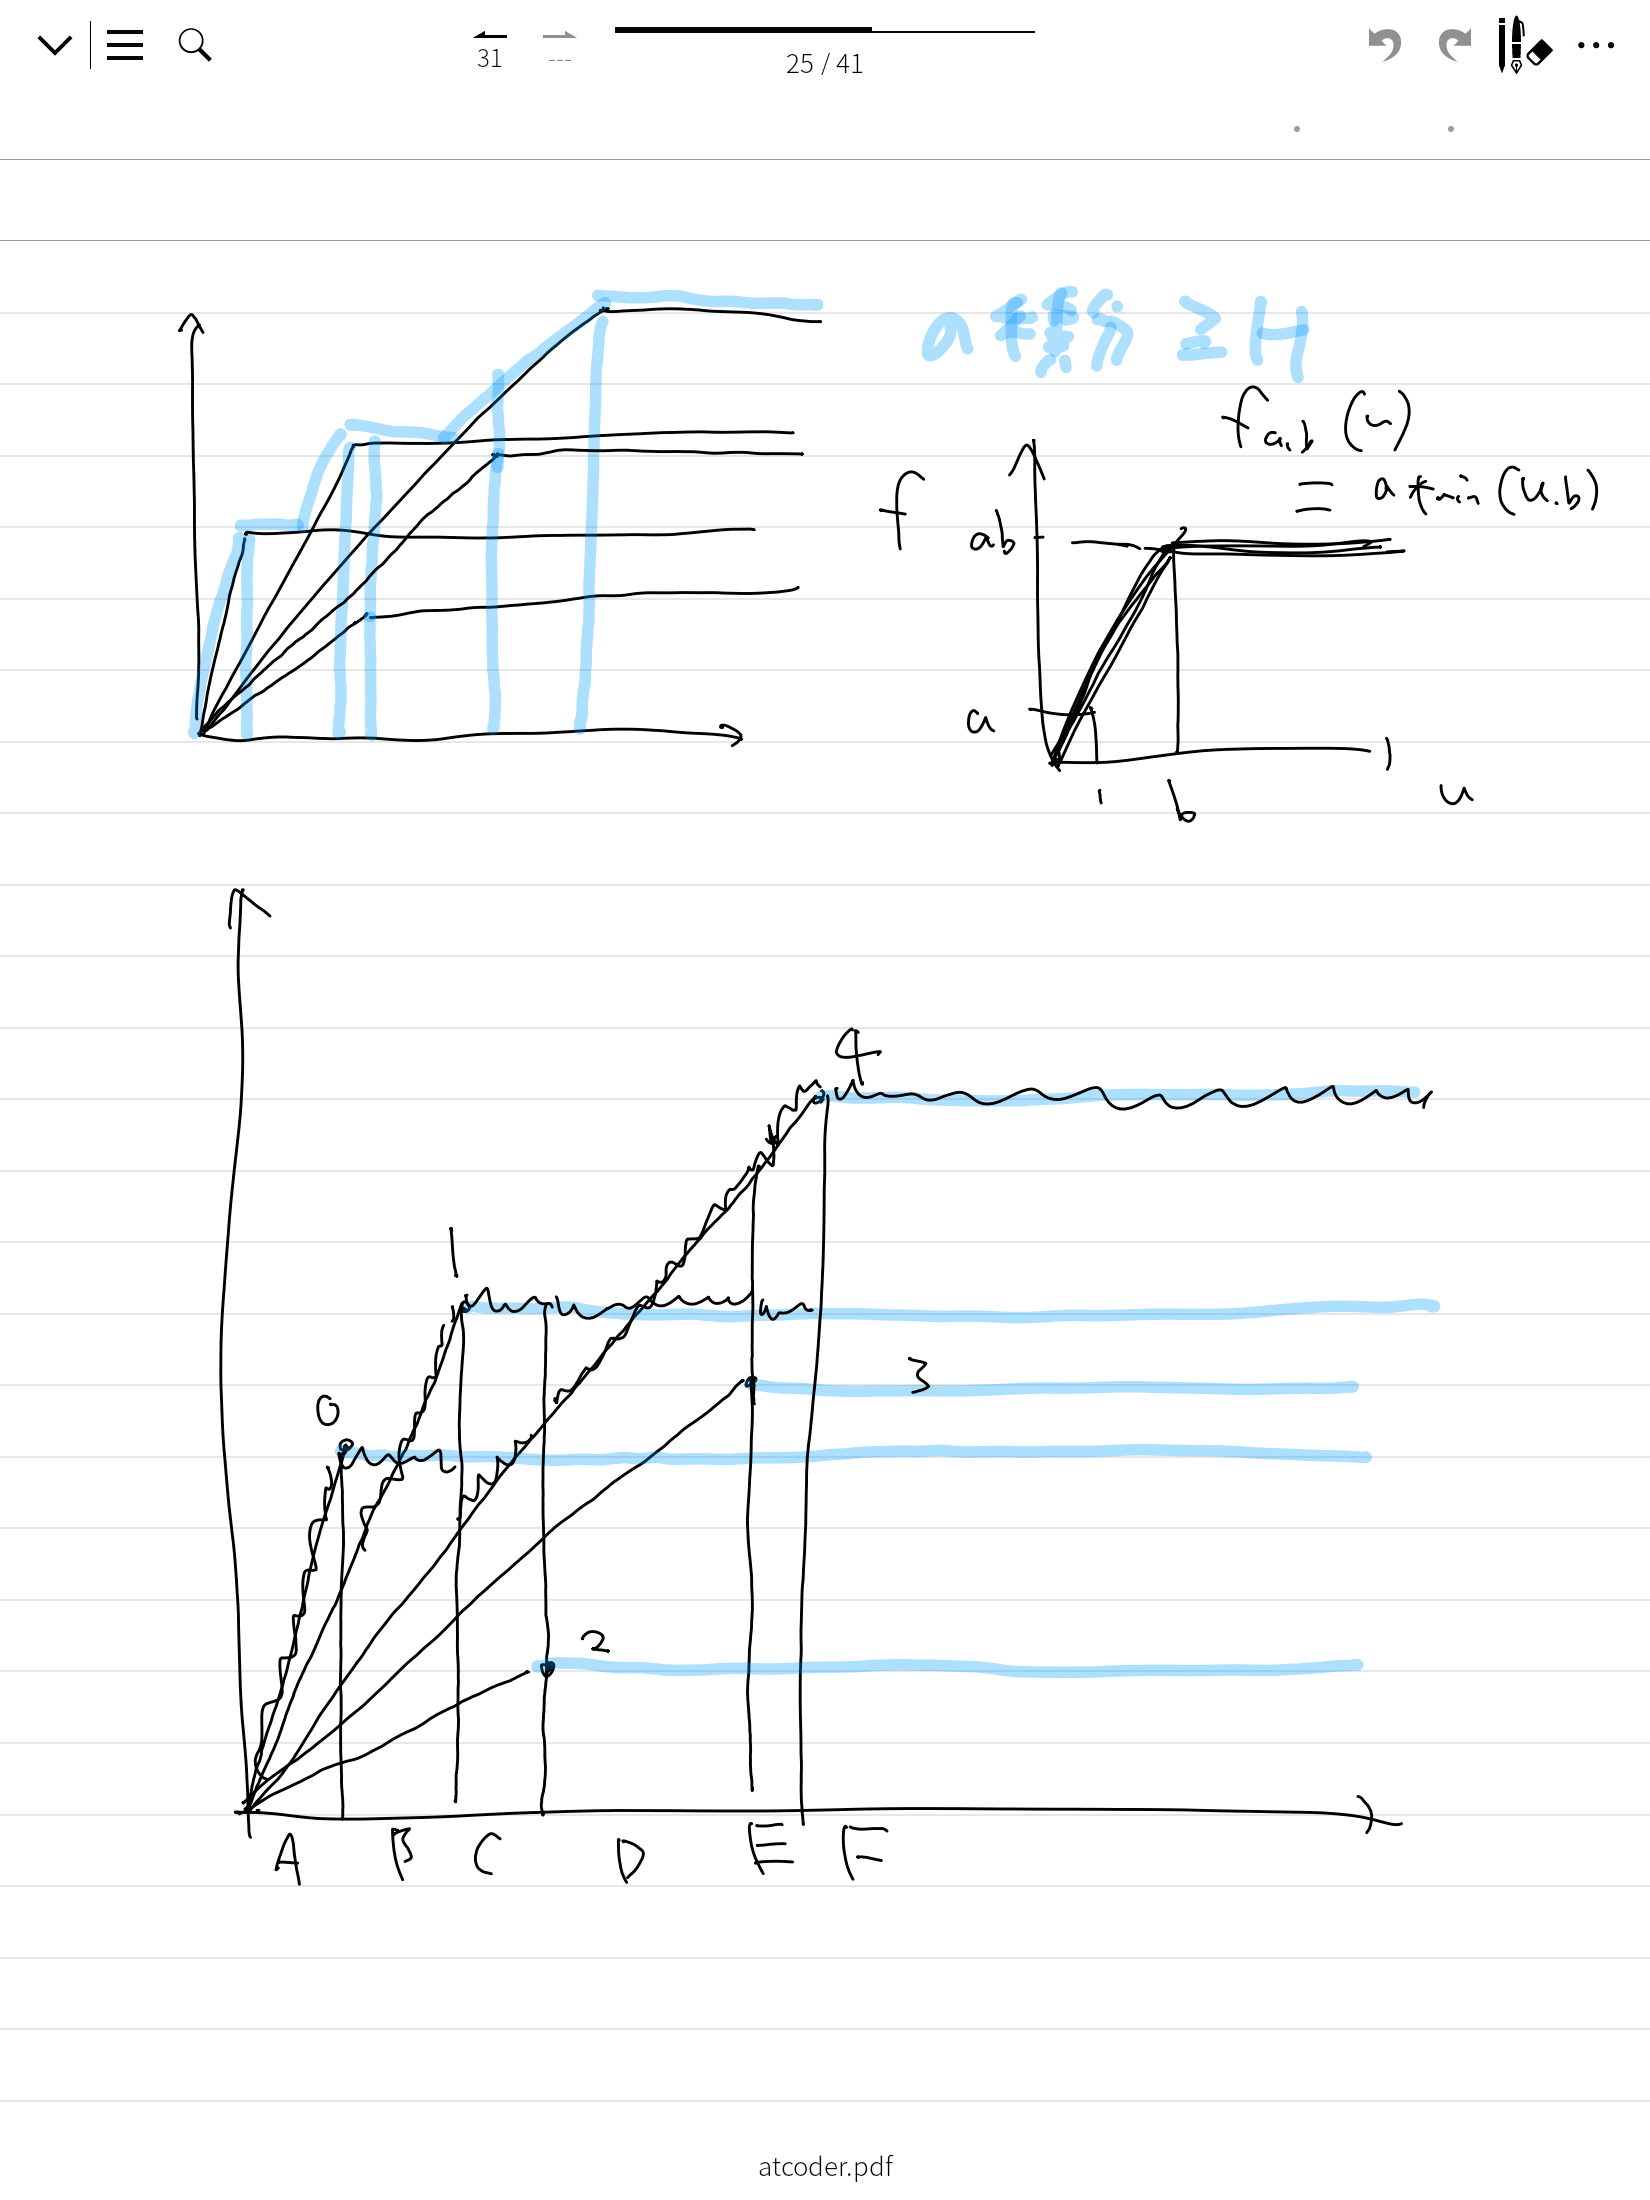 31
---
25 / 41
a 積分 ≥ H
f a,b (u)
= a * min (u.b)
f
ab
a
1
b
u
4
1
0
3
2
A B C D E F
atcoder.pdf